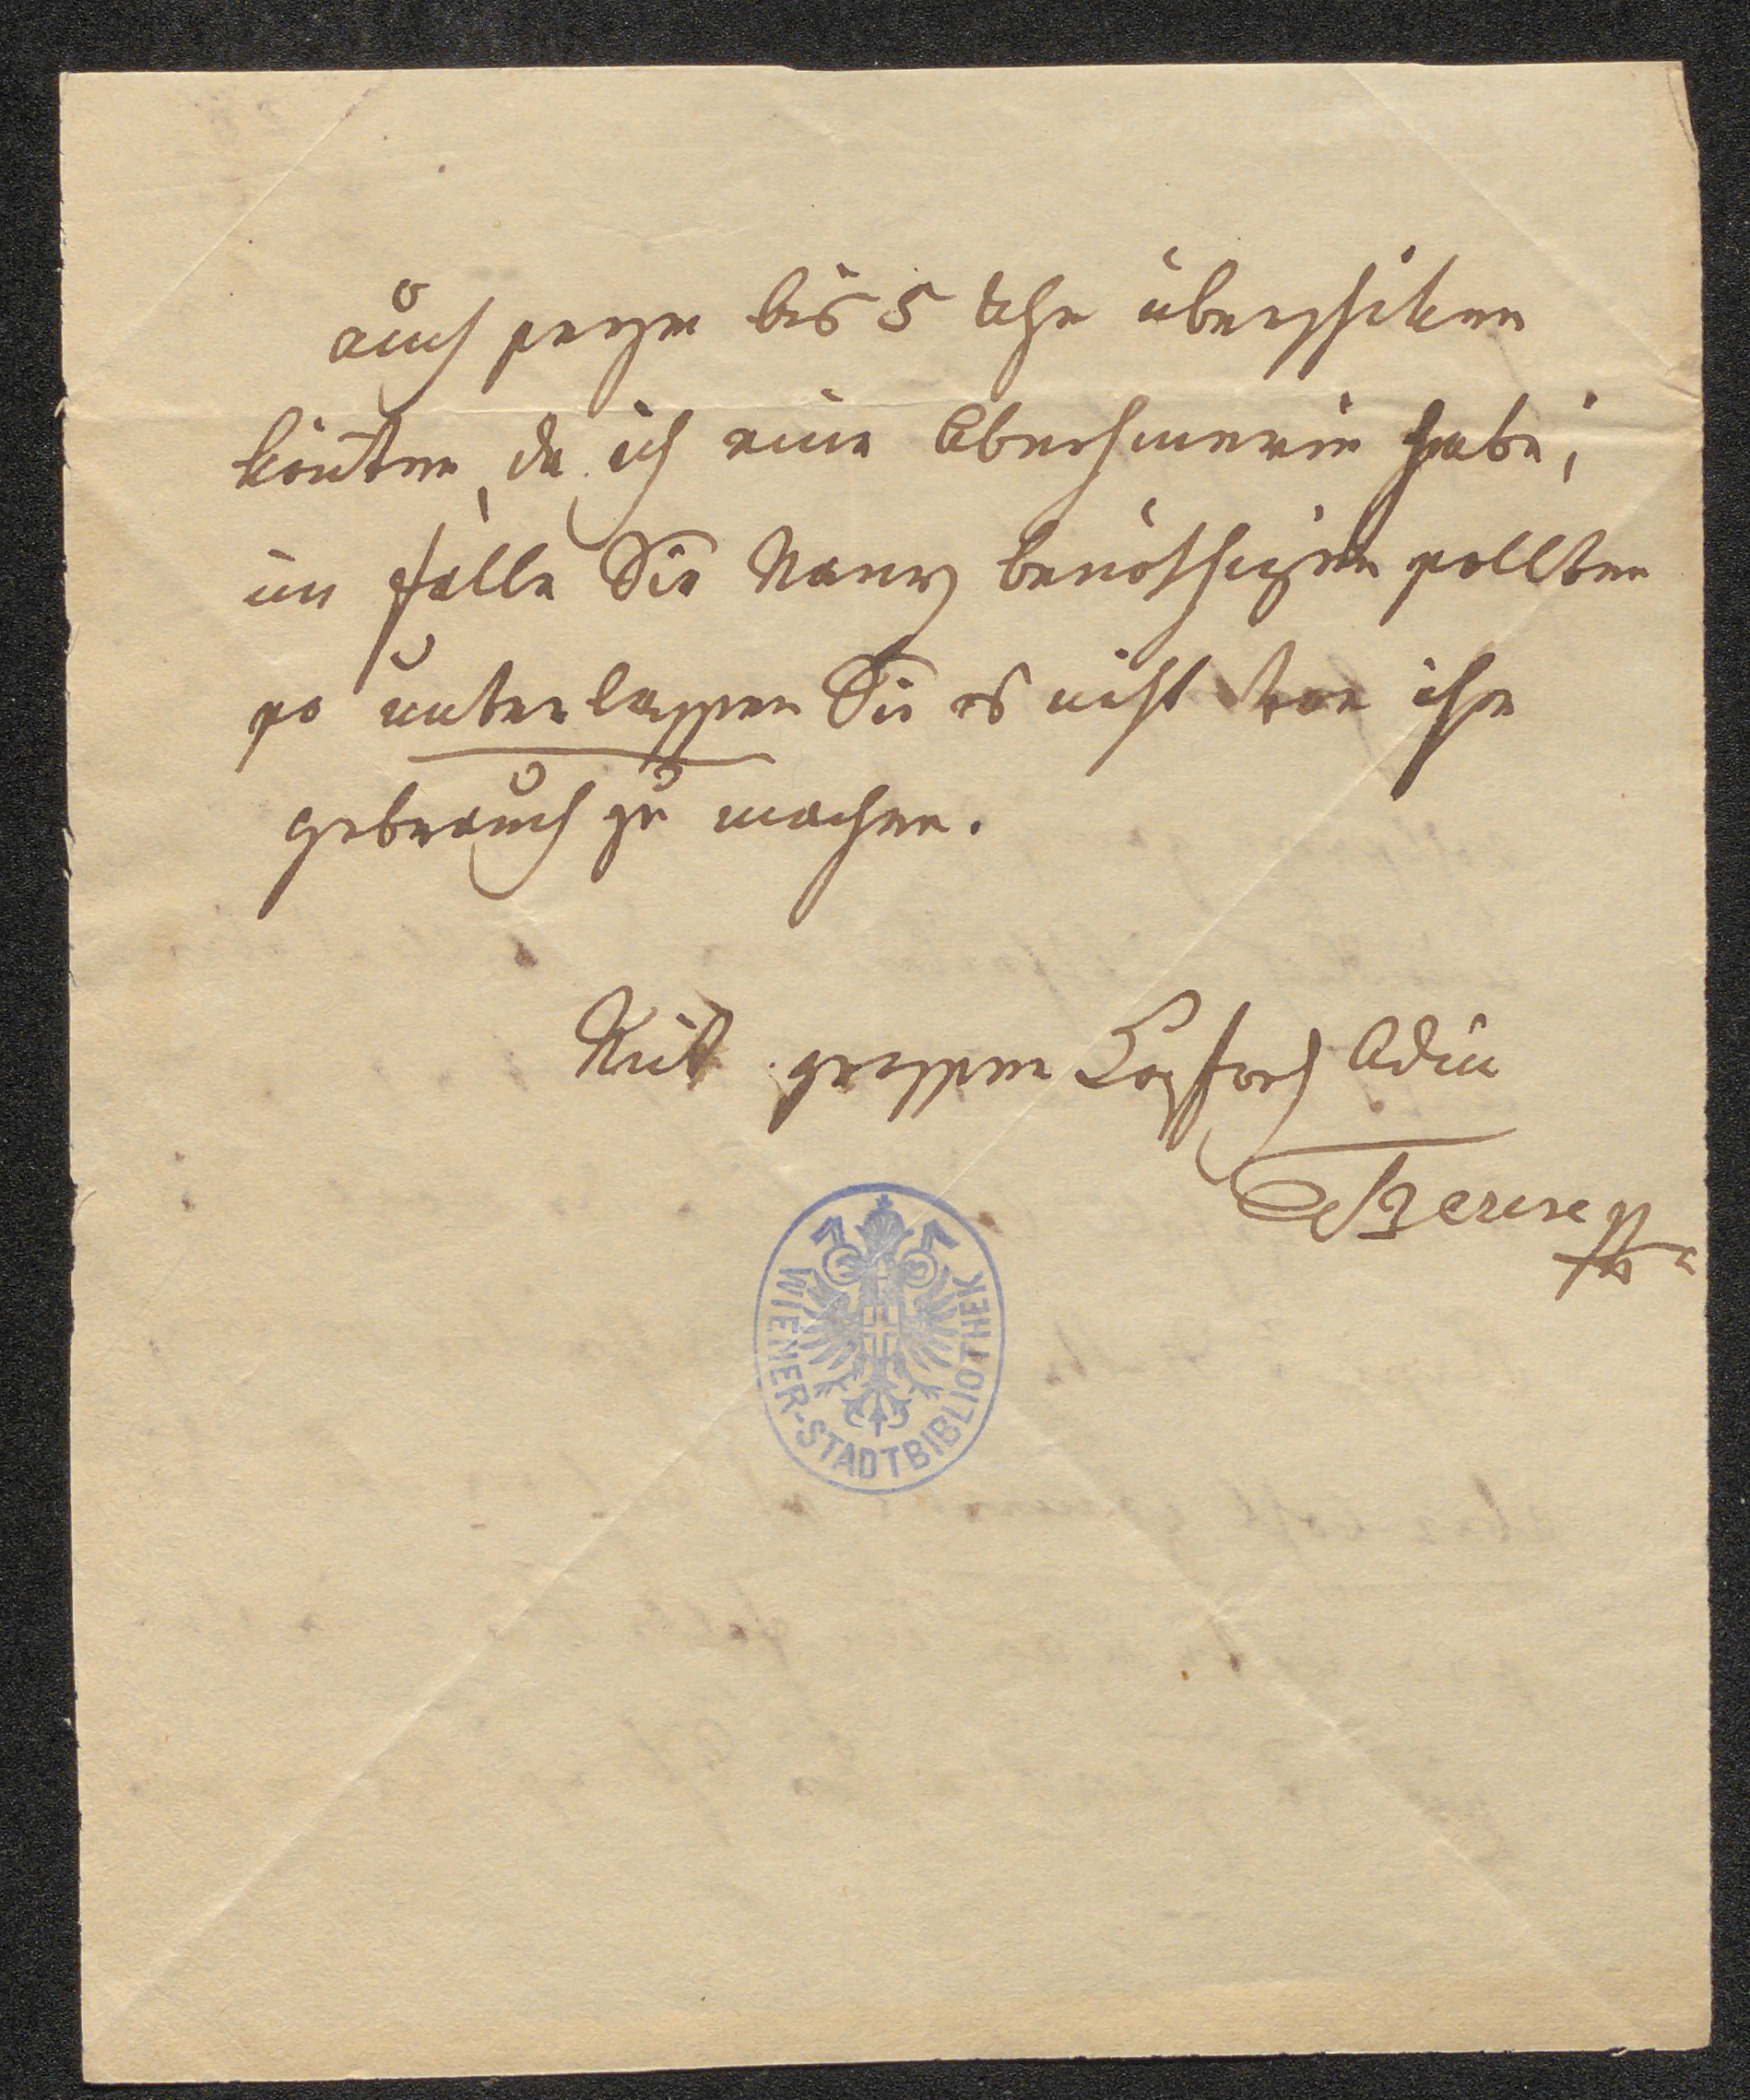 auch heger bis 5 Uhr überschiken
könten, da ich eine Abnehmerin habe,
im falle Sie Nany benöthigen sollten
so unterlassen Sie es nicht von ihr
gebrauch zu machen.
Mit grossen Adiu
Therese
WIENER-STADTBIBLIOTHEK